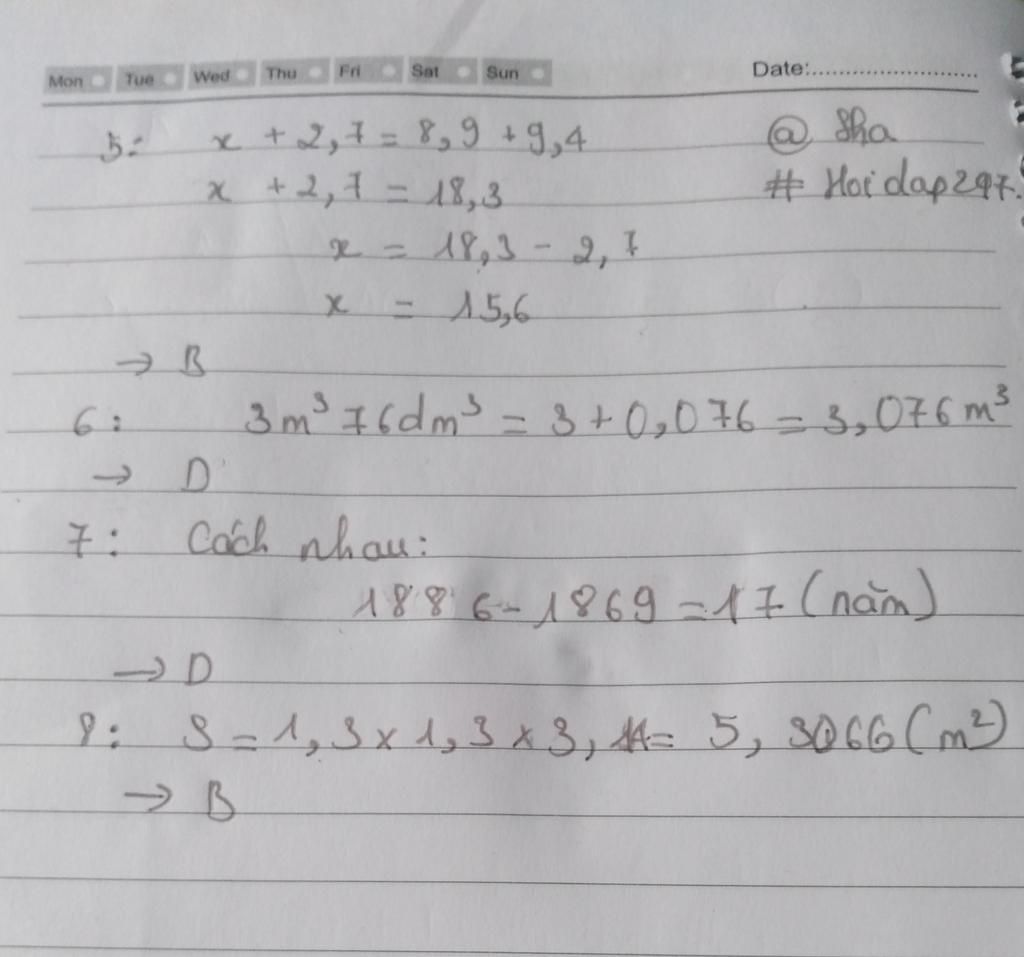 Mon Tue Wed Thu Fri Sat Sun Date:
5: x + 2,7 = 8,9 + 9,4 @ Sha
x + 2,7 = 18,3 # Hoidap247.
x = 18,3 - 2,7
x = 15,6
→ B
6: 3m³ 76dm³ = 3 + 0,076 = 3,076 m³
→ D
7: Cách nhau:
1886 - 1869 = 17 (năm)
→ D
8: S = 1,3 x 1,3 x 3,14 = 5,3066 (m²)
→ B